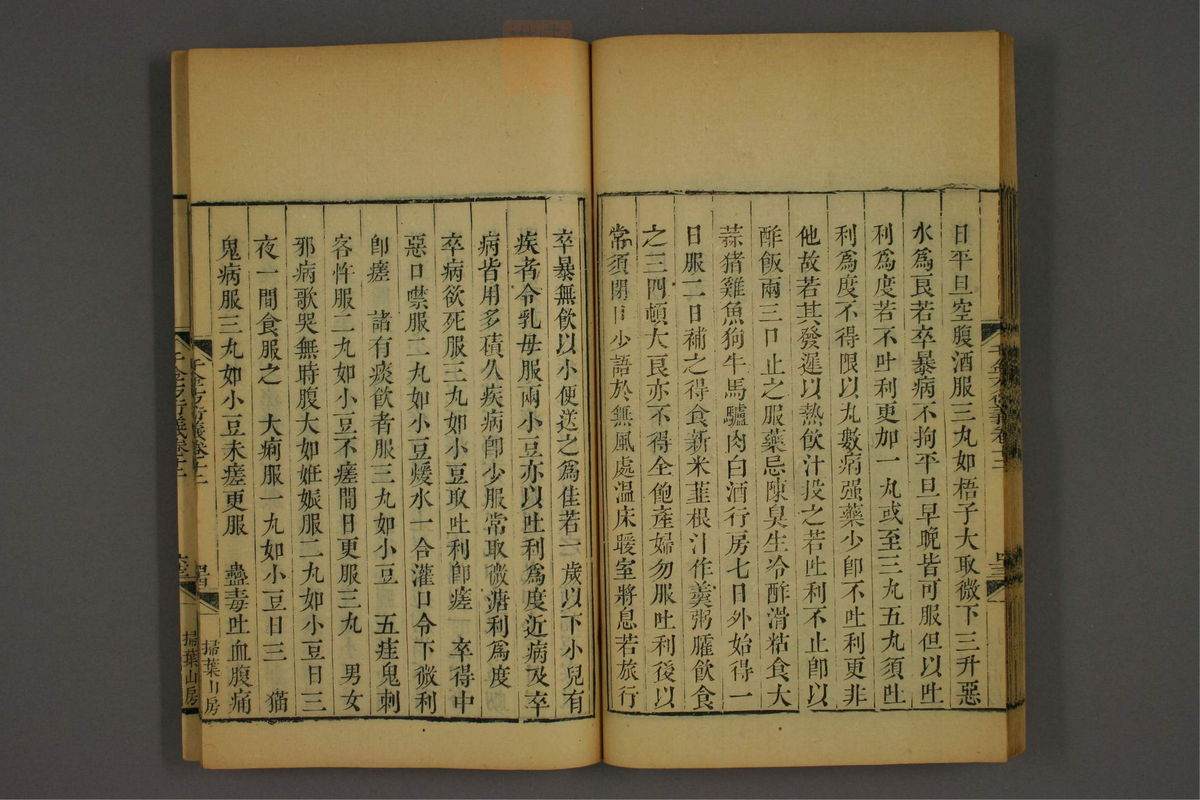 日平旦空腹酒服三丸如梧子大取微下三升惡
水爲良若卒暴病不拘平旦早晚皆可服但以吐
利爲度若不吐利更加一丸或至三丸五丸須吐
利爲度不得限以丸數病强藥少卽不吐利更非
他故若其發遲以熱飲汁投之若吐利不止卽以
酢飯兩三口止之服藥忌陳臭生冷酢滑粘食大
蒜猪雞魚狗牛馬驢肉白酒行房七日外始得一
日服二日補之得食新米韮根汁作羮粥臛飲食
之三四頓大良亦不得全飽產婦勿服吐利後以
常須閉口少語於無風處溫床暖室將息若旅行
卒暴無飲以小便送之爲佳若一歲以下小兒有
疾者令乳母服兩小豆亦以吐利爲度近病及卒
病皆用多積久疾病卽少服常取微溏利爲度
卒病欲死服三丸如小豆取吐利卽瘥 卒得中
惡口噤服二丸如小豆煖水一合灌口令下微利
卽瘥 諸有痰飲者服三丸如小豆 五疰鬼刺
客忤服二丸如小豆不瘥間日更服三丸 男女
邪病歌哭無時腹大如妊娠服二丸如小豆日三
夜一間食服之 大痢服一丸如小豆日三 猫
鬼病服三丸如小豆未瘥更服 蠱毒吐血腹痛
千金方衍義卷十二
掃葉山房
掃葉山房